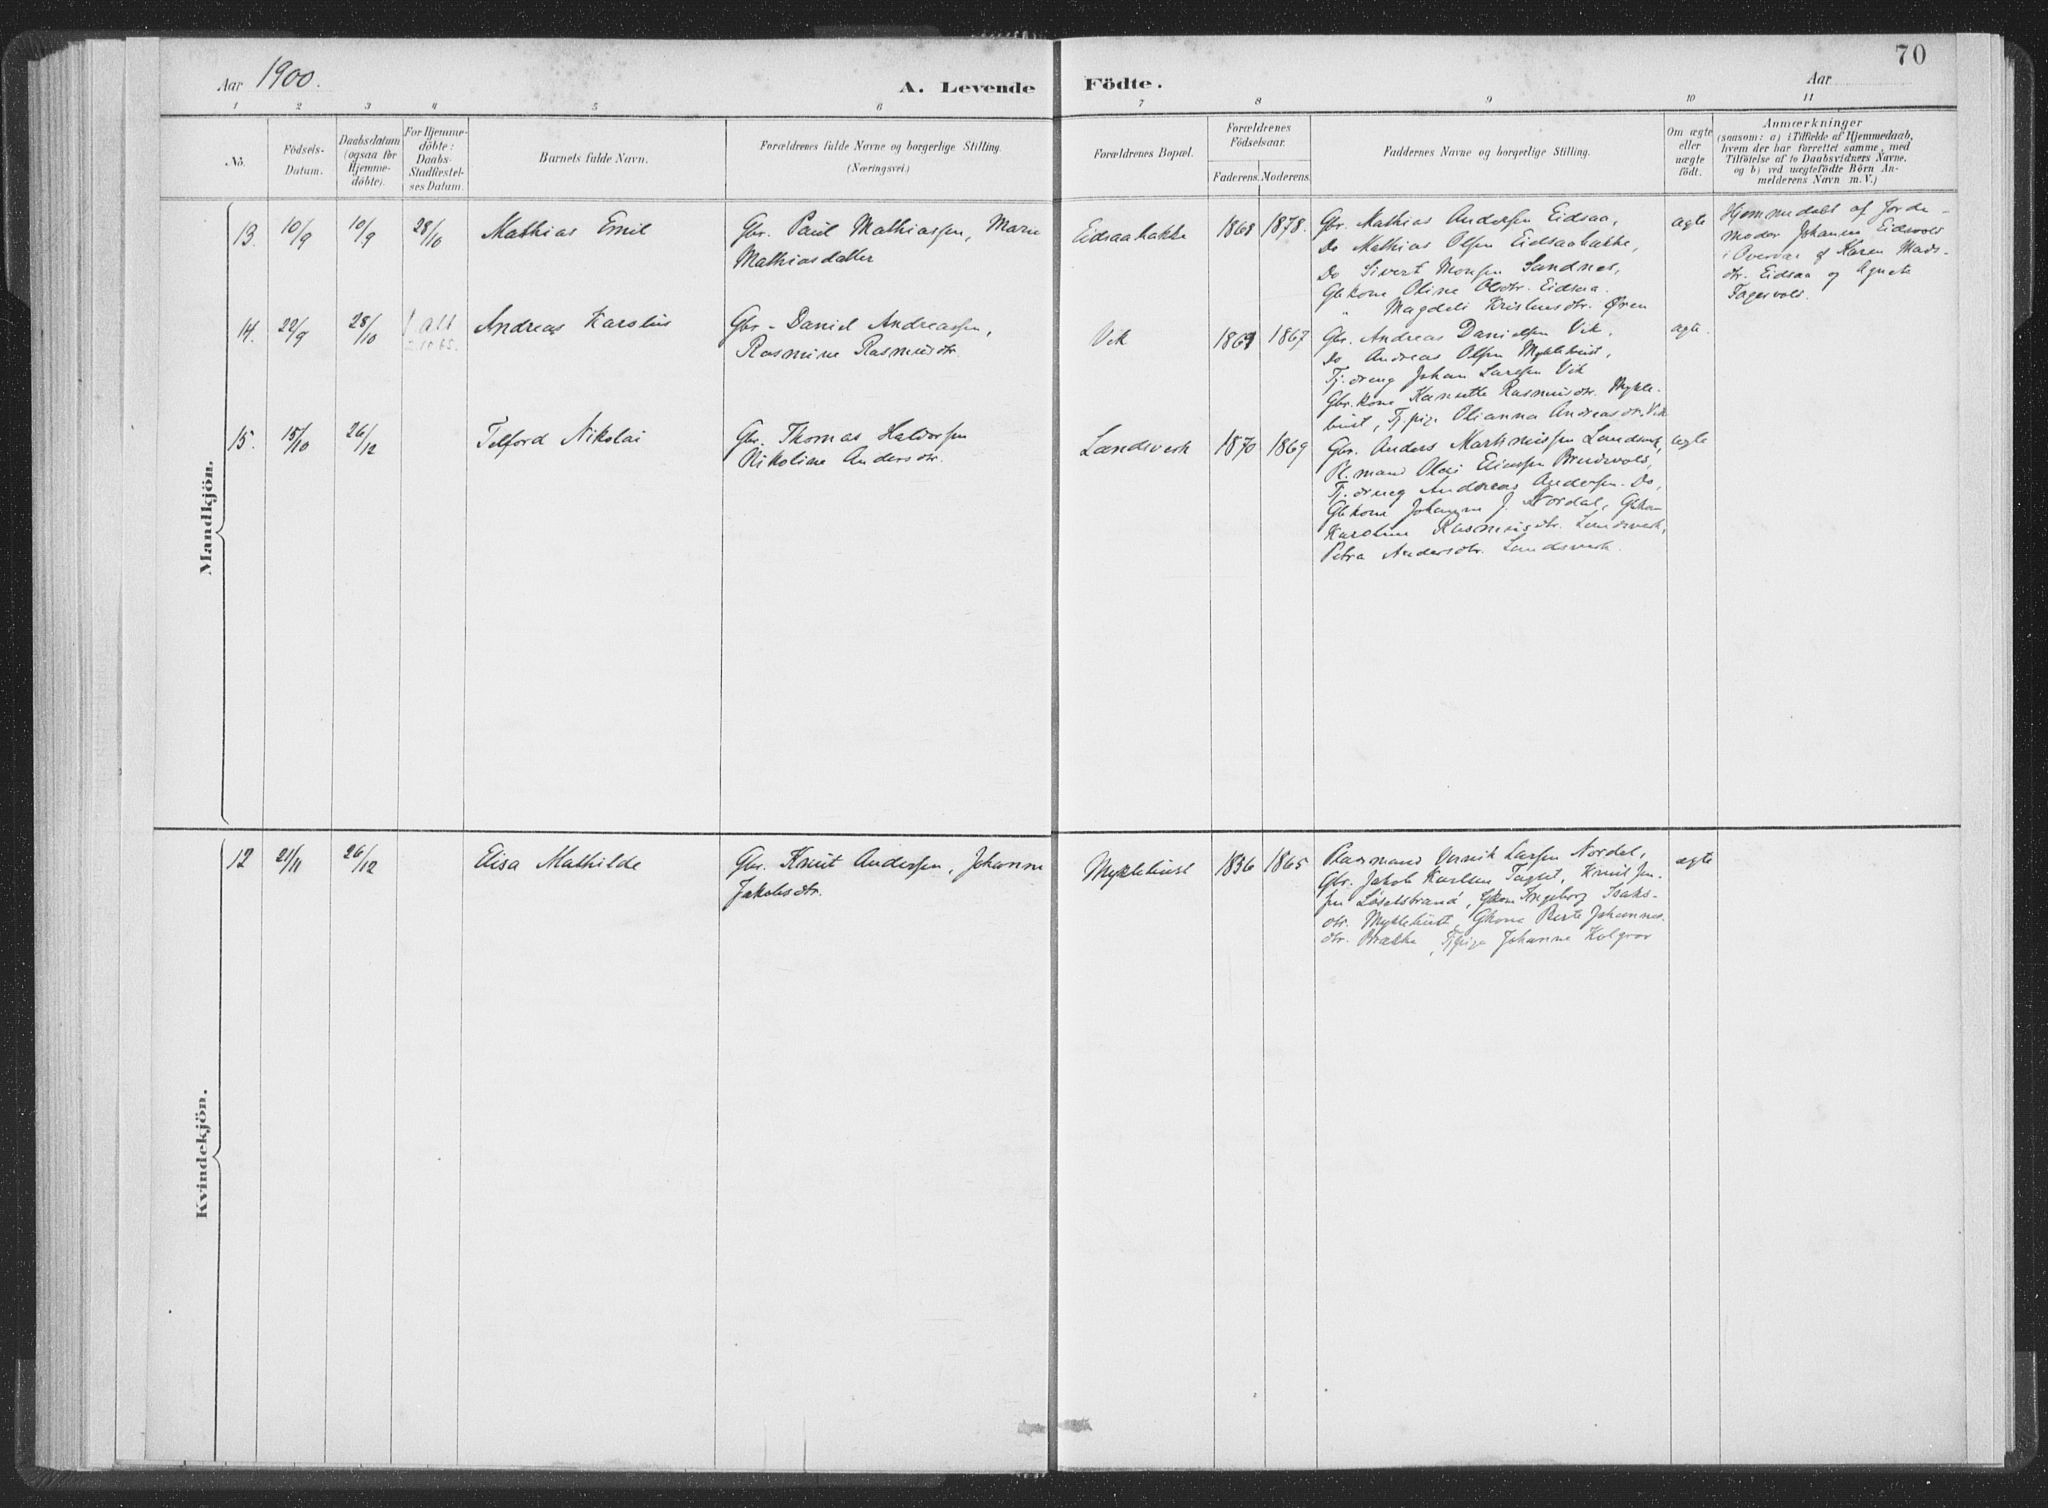 70
Aar 1900.
A. Levende Födte.
Aar
1 2 3 4 5 6 7 8 9 10 11
No.
Födsels-
Datum.
Daabsdatum
(ogsaa for
Hjemme-
döbte).
For Hjemme-
döbte:
Daabs-
Stadfæstel-
ses Datum.
Barnets fulde Navn.
Forældrenes fulde Navne og borgerlige Stilling.
(Næringsvei.)
Forældrenes Bopæl.
Forældrenes
Födselsaar.
Faderens. Moderens.
Faddernes Navne og borgerlige Stilling.
Om ægte
eller
uægte
födt.
Anmærkninger
(saasom: a) i Tilfælde af Hjemmedaab,
hvem der har forrettet samme, med
Tilföielse af to Daabsvidners Navne,
og b) ved uægtefödte Börn An-
melderens Navn m. V.)
Mandkjön.
13. 10/9 10/9 28/10 Mathias Emil
Gbr. Paul Mathiassen, Marie
Mathiasdatter
Eidsaabakke 1868 1878.
Gbr. Mathias Andersen Eidsaa,
Do Mathias Olsen Eidsaabakke,
Do Sivert Monsen Sandnes,
Gbkone Oline Olsdtr. Eidsaa.
" Magdeli Kristensdtr. Øren
ægte
Hjemmedøbt af Jorde-
moder Johanne Eidsvold
i Overvær af Karen Mads-
dtr. Eidsaa og Agnete
Fagervold.
14. 22/9 28/10 Andreas Karolus
Gbr. Daniel Andreassen,
Rasmine Rasmusdtr.
Vik 1869 1867
Gbr. Andreas Danielsen Vik,
Do Andreas Olsen Myklebust,
Tj.dreng Johan Larsen Vik
Gbr.kone Rasmusdtr. Mykle-
bust, Tj.pige Olianna Andreasdtr. Vik
ægte.
15. 15/10 26/12 Telford Nikolai
Gbr. Thomas Haldorsen
Nikoline Andersdtr.
Landsverk 1870 1869
Gbr. Anders Martinussen Landsverk,
Pl.mand Olai Eliassen Breivold,
Tj.dreng Andreas Andersen Do,
Gbkone Johanne J. Nordal, Gbkone
Karoline Rasmusdtr. Landsverk,
Petra Andersdtr. Landsverk.
ægte
Kvindekjön.
12 21/11 26/12 Elisa Mathilde
Gbr. Knut Andersen, Johanne
Jakobsdtr.
Myklebust 1856 1865
Plasmand Larsen Nordal,
Gbr. Jakob Karlsen, Knut Jen-
sen, Gkone Ingeborg Isaks-
dtr. Myklebust, Gkone Berte Johannes-
dtr. Brække, Tjpige Johanne Holgrov
ægte